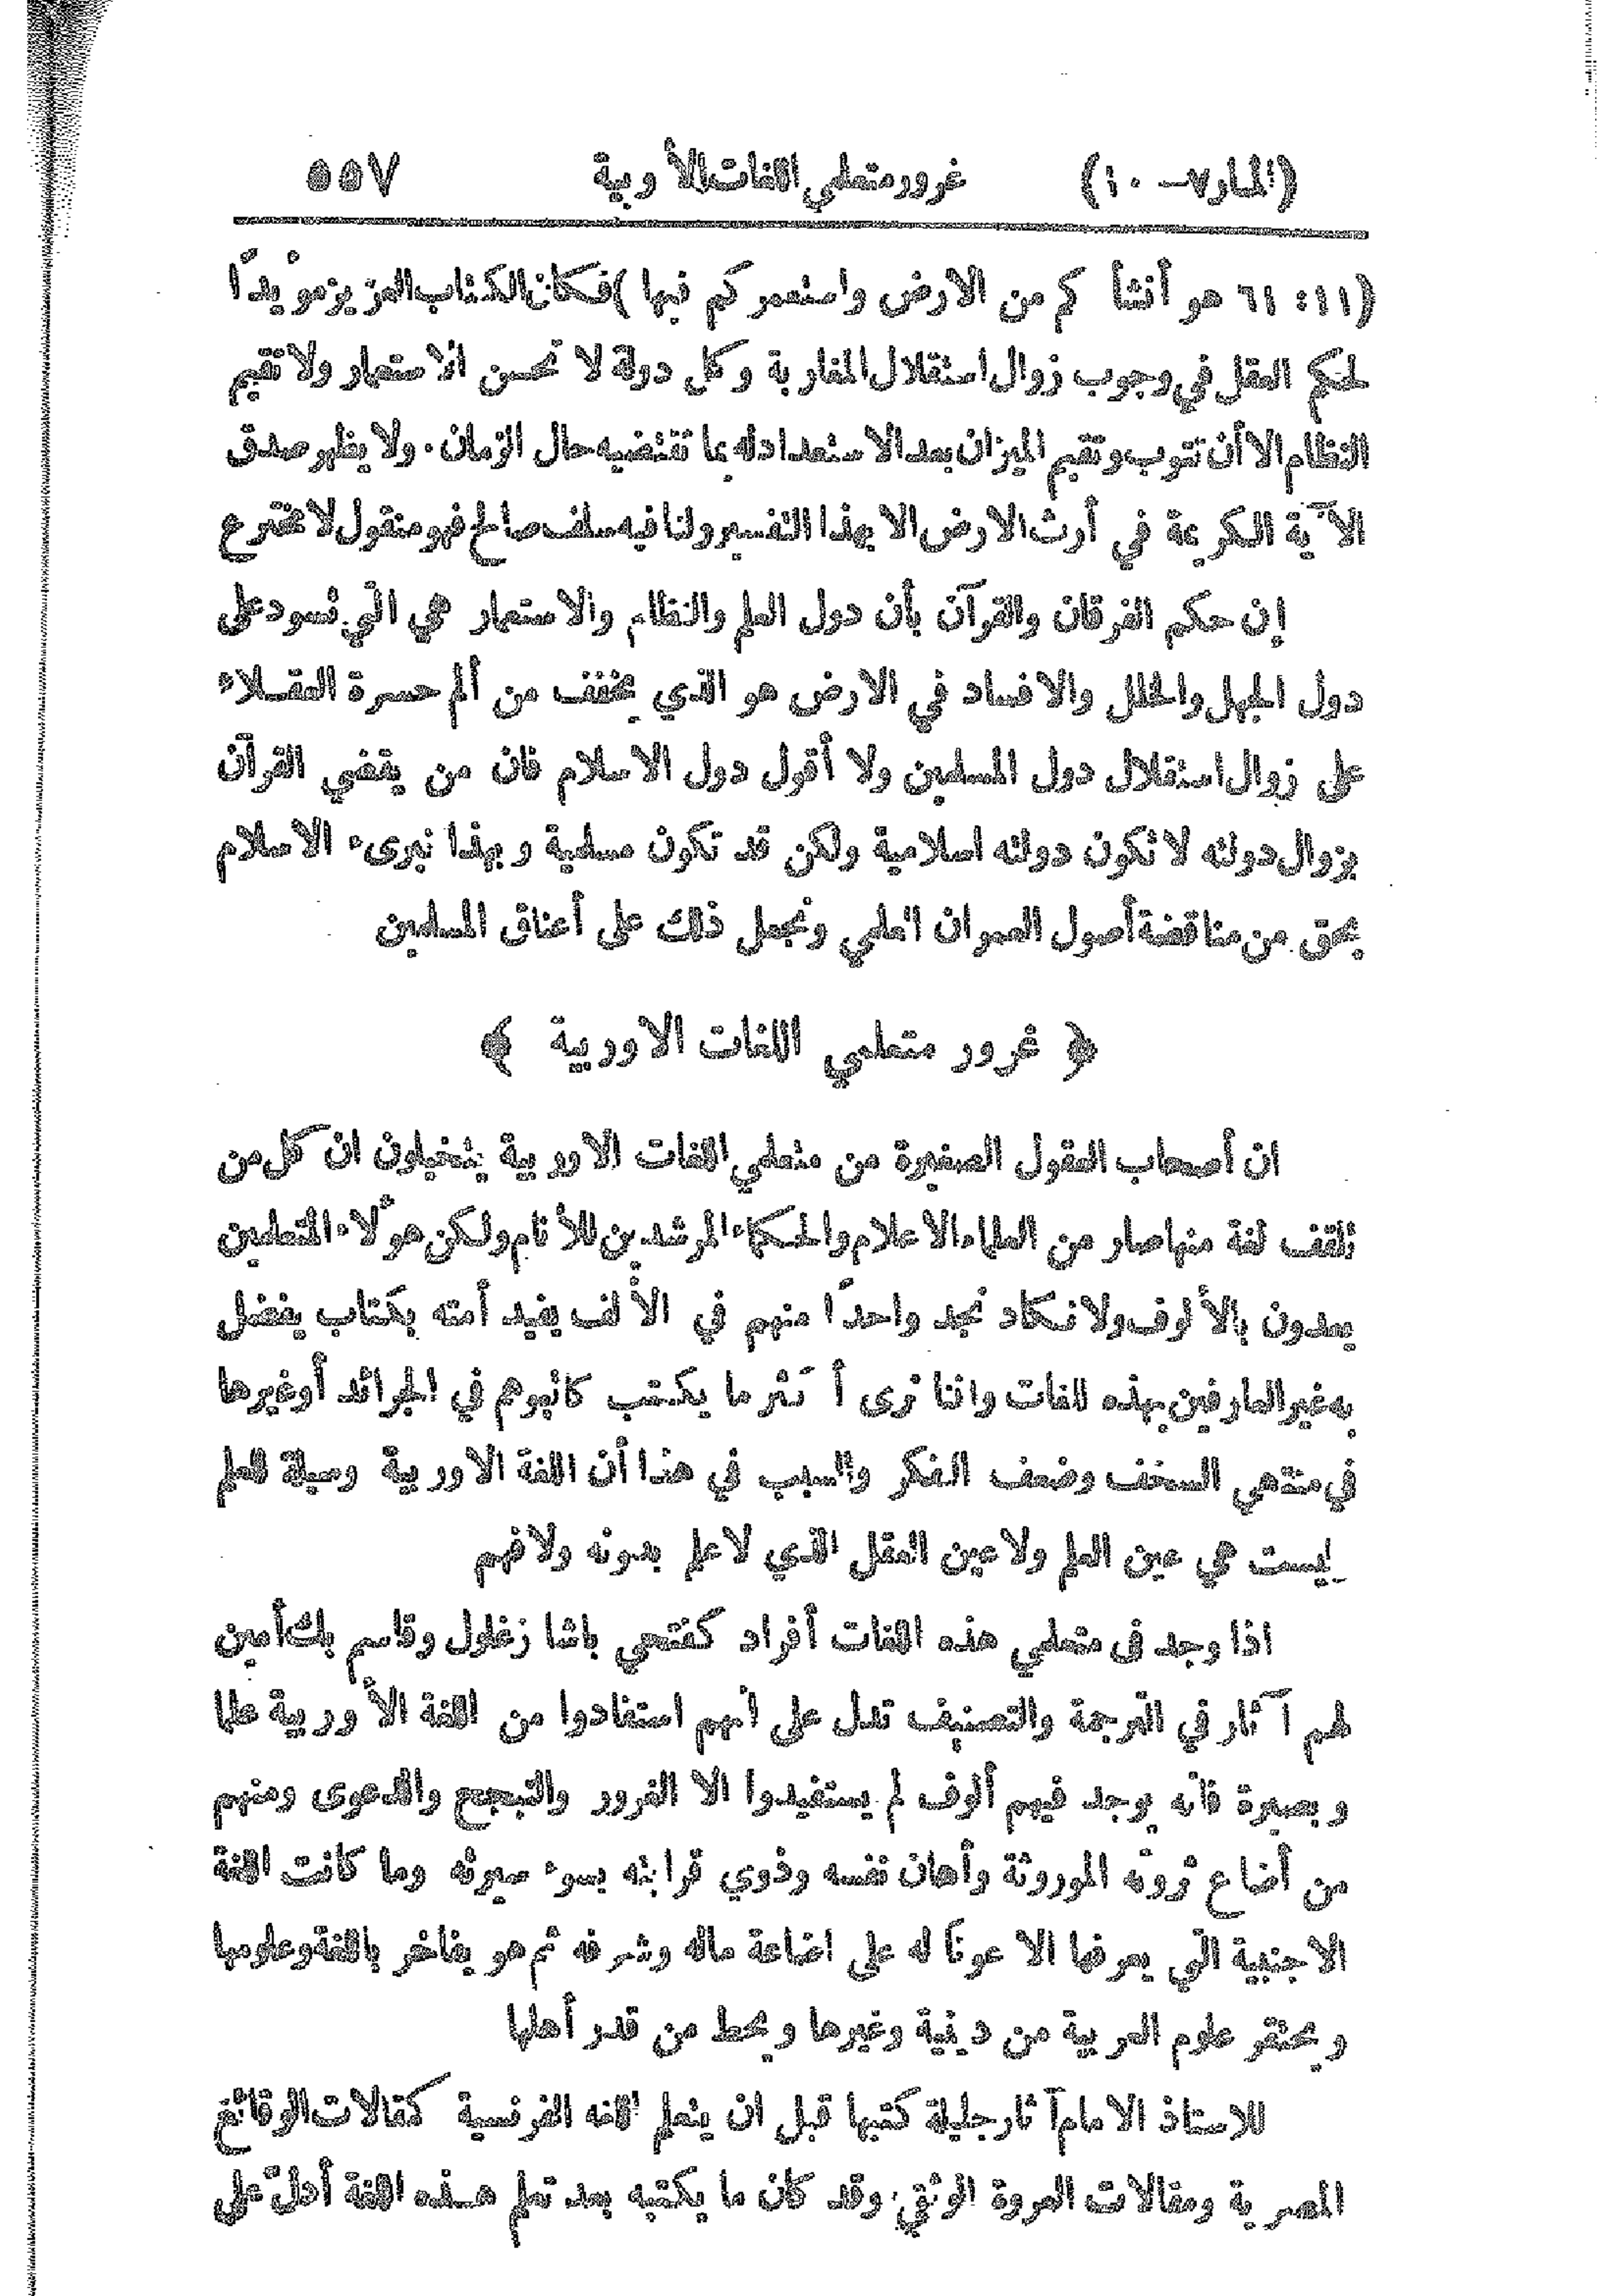 (المنار ٧ – ١٠) غرور متعلمي اللغات الأوربية ٥٥٧
(١١: ٦١ هو أنشأكم من الارض واستعمركم فيها ) فكان الكتاب العزيز مؤيدًا
لحكم العقل في وجوب زوال استقلال المغاربة وكل دولة لا تحسن الاستعمار ولا تقيم
النظام الا أن تتوب وتقيم الميزان بعد الاستعداد له بما تقتضيه حال الزمان . ولا يظهر صدق
الآية الكريمة في أرث الارض الا بهذا التفسير ولنا فيه سلف صالح فهو منقول لا مخترع
إن حكم الفرقان والقرآن بأن دول العلم والنظام والاستعمار هي التي تسود على
دول الجهل والخلل والافساد في الارض هو الذي يخفف من ألم حسرة العقلاء
على زوال استقلال دول المسلمين ولا أقول دول الاسلام فان من يقضي القرآن
بزوال دولته لا تكون دولته اسلامية ولكن قد تكون مسلمية وبهذا نبرىء الاسلام
بحق من مناقضة أصول العمران العلمي ونجعل ذلك على أعناق المسلمين
﴿ غرور متعلمي اللغات الاوربية ﴾
ان أصحاب العقول الصغيرة من متعلمي اللغات الاوربية يتخيلون ان كل من
تلقف لغة منها صار من العلماء الاعلام والحكماء المرشدين للأنام ولكن هؤلاء المتعلمين
يعدون بالألوف ولا نكاد نجد واحدًا منهم في الألف يفيد أمته بكتاب يفضل
به غير العارفين بهذه اللغات واننا نرى أكثر ما يكتب كاتبوهم في الجرائد أو غيرها
في منتهى السخف وضعف الفكر والسبب في هذا أن اللغة الاوربية وسيلة للعلم
ليست هي عين العلم ولا عين العقل الذي لا علم بدونه ولا فهم
اذا وجد في متعلمي هذه اللغات أفراد كفتحي باشا زغلول وقاسم بك أمين
لهم آثار في الترجمة والتصنيف تدل على انهم استفادوا من اللغة الأوربية علما
وبصيرة فانه يوجد فيهم ألوف لم يستفيدوا الا الغرور والتبجح والدعوى ومنهم
من أضاع ثروته الموروثة وأهان نفسه وذوي قرابته بسوء سيرته وما كانت اللغة
الاجنبية التي يعرفها الا عوناً له على اضاعة ماله وشرفه ثم هو يفاخر باللغة وعلومها
ويحتقر علوم العربية من دينية وغيرها ويحط من قدر أهلها
للاستاذ الامام آثار جليلة كتبها قبل ان يتعلم اللغه الفرنسية كمقالات الوقائع
المصرية ومقالات العروة الوثقى وقد كان ما يكتبه بعد تعلم هذه اللغة أدلّ على